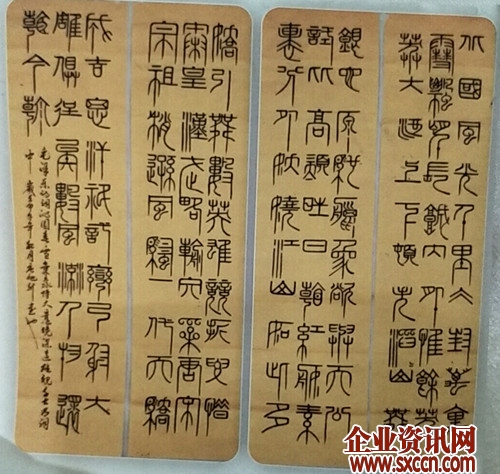 北國風光千里冰封萬里
雪飄望長城內外惟餘莽
莽大河上下頓失滔山舞
銀蛇原馳蠟象欲與天公
試比高須晴日看紅裝素
裹分外妖嬈江山如此多
嬌引無數英雄競折腰惜
秦皇漢武略輸文采唐宋
宗祖稍遜風騷一代天驕
成吉思汗祗識彎弓射大
雕俱往矣數風流人物還
看今朝
毛澤東詞沁園春雪
企业资讯网
www.sxccn.com